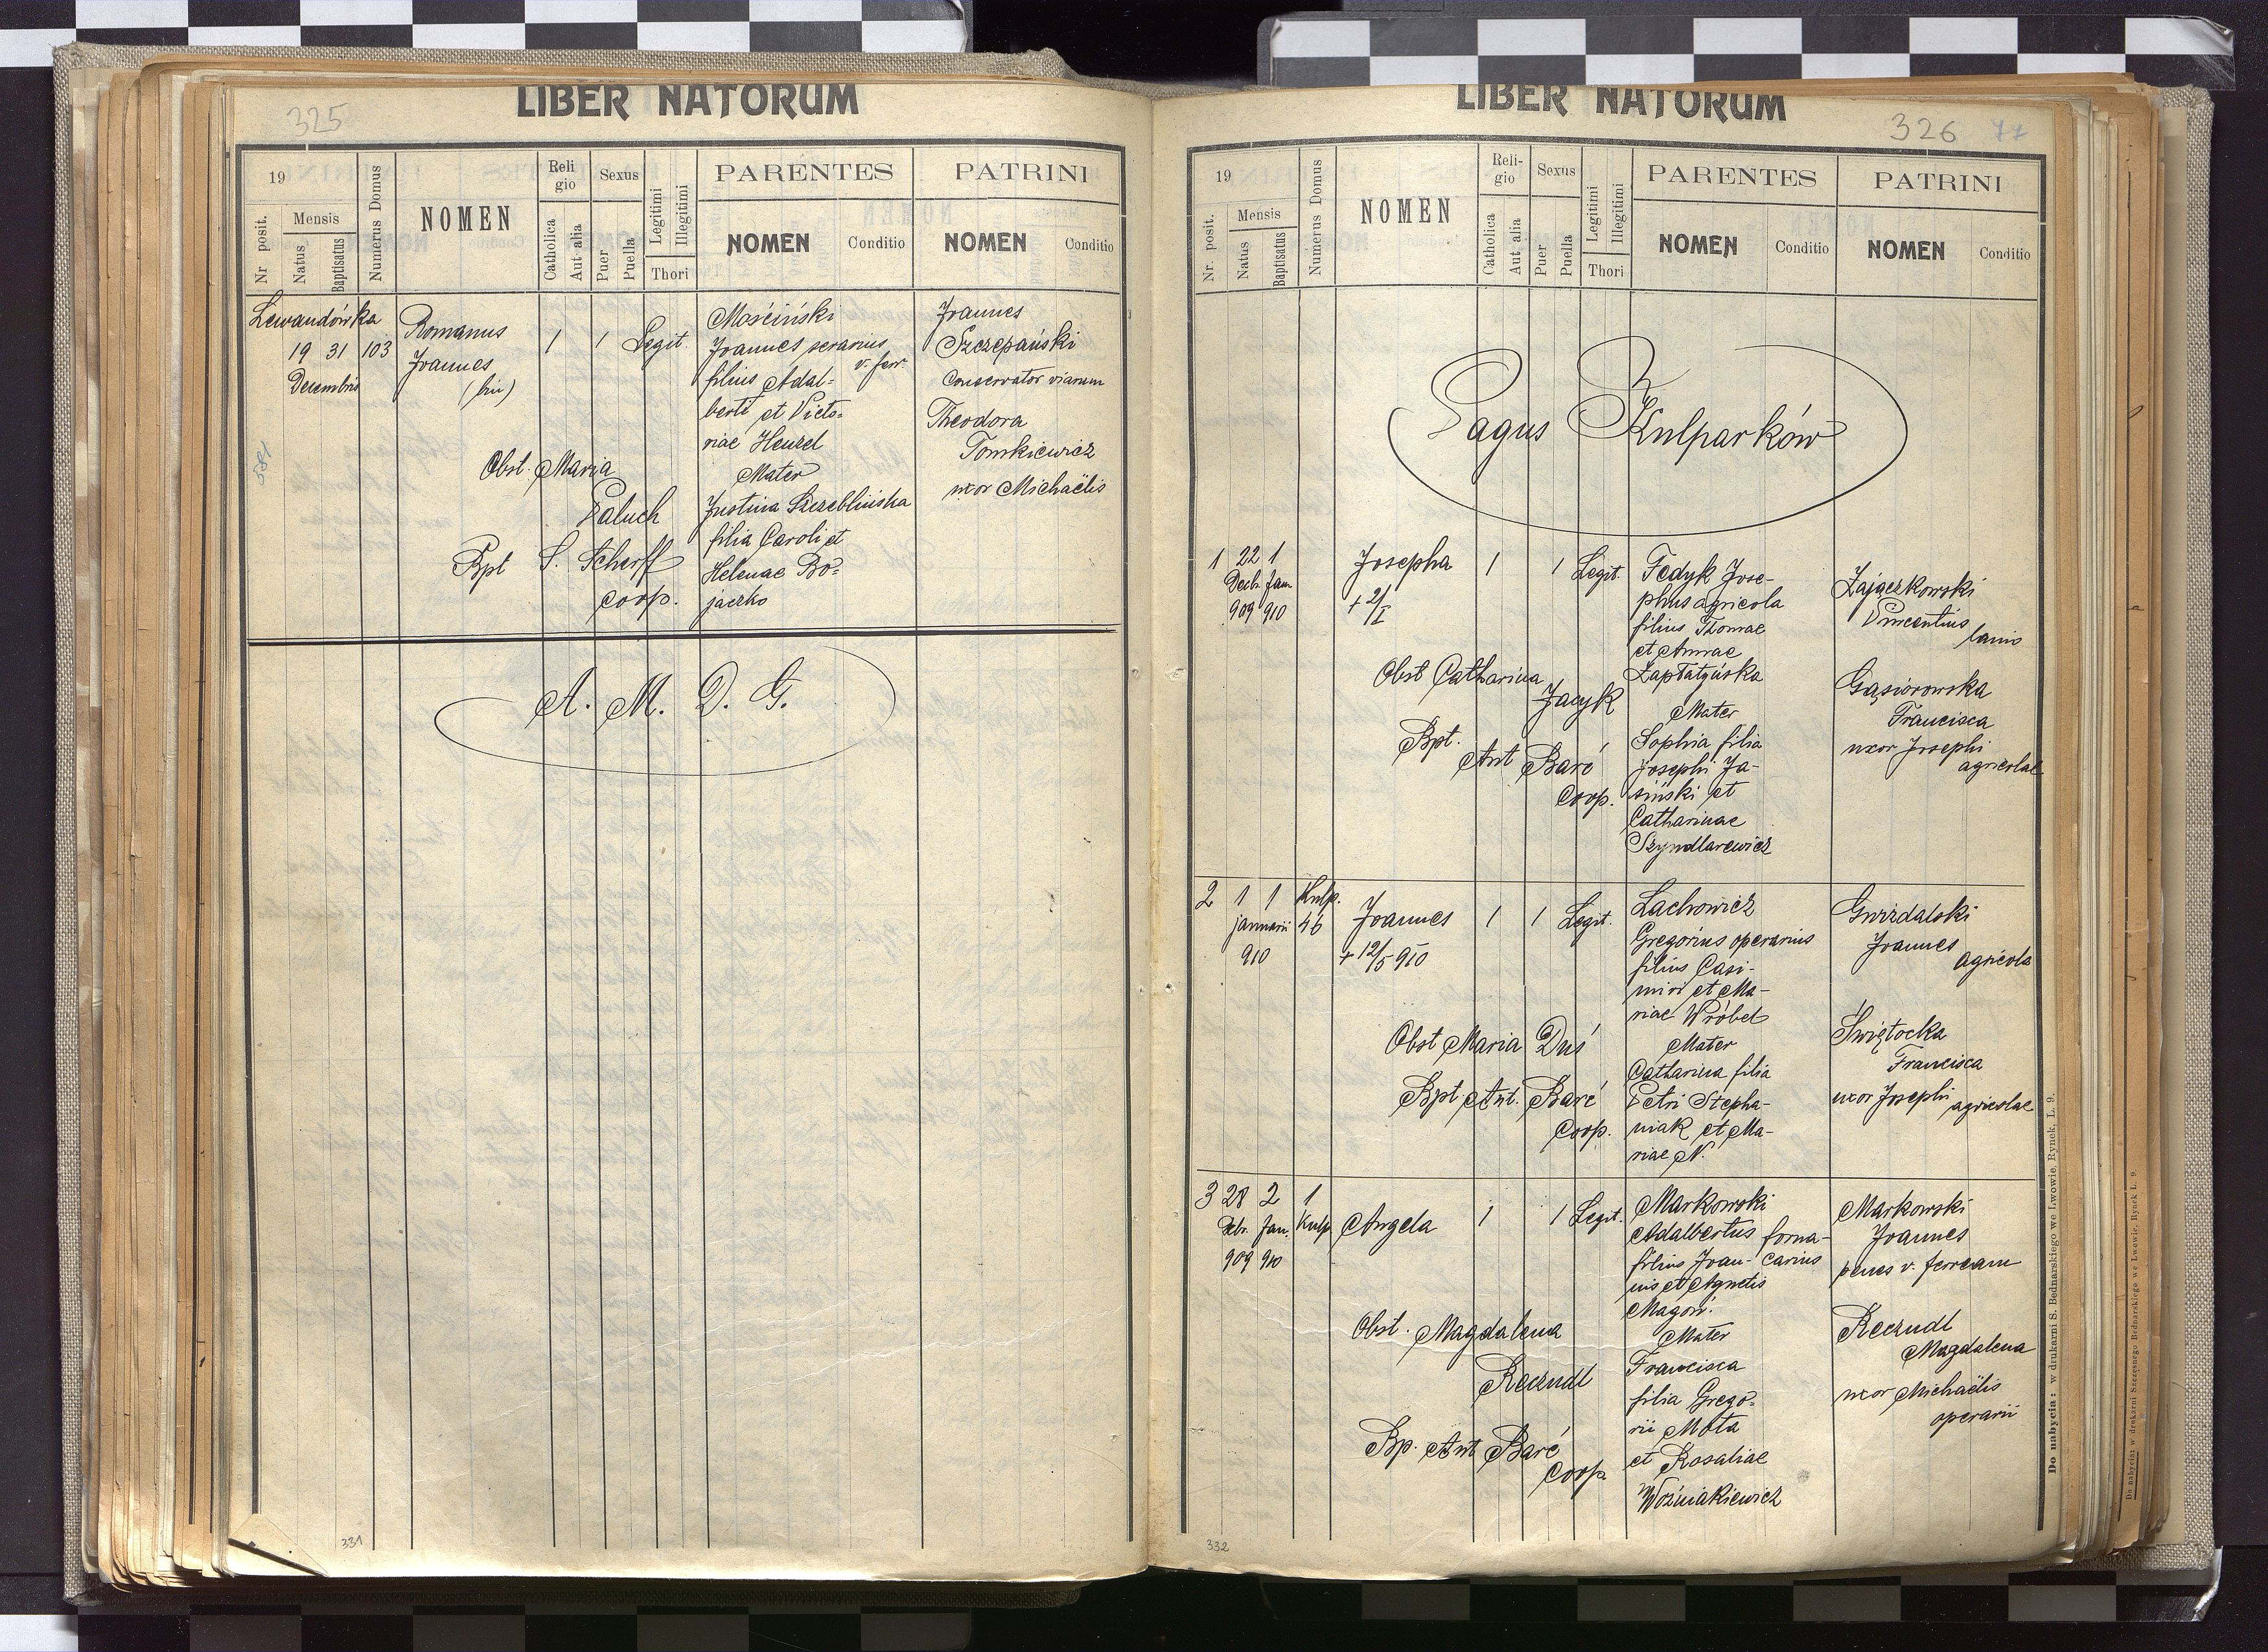 325
LIBER NATORUM
19
Mensis
Nr posit.
Natus
Baptisatus
Numerus Domus
NOMEN
Religio
Catholica
Aut alia
Sexus
Puer
Puella
Legitimi
Illegitimi
Thori
PARENTES
NOMEN
Conditio
PATRINI
NOMEN
Conditio
Lewandówka
19 31 103
Decembris
Romanus
Joannes
(bin)
1 1 Legit.
Obst. Maria
Paluch
Bpt S. Scherff
coop.
Mościński
Joannes serarius
v. ferr.
filius Adal=
berti et Victo=
riae Henzel
Mater
Justina Szczeblińska
filia Caroli et
Helenae Bo=
jaczko
Joannes
Szczepański
conservator viarum
Theodora
Tomkiewicz
uxor Michaëlis
581
A. M. D. G.
331
LIBER NATORUM
326
19
Mensis
Nr. posit.
Natus
Baptisatus
Numerus Domus
NOMEN
Religio
Catholica
Aut alia
Sexus
Puer
Puella
Legitimi
Illegitimi
Thori
PARENTES
NOMEN
Conditio
PATRINI
NOMEN
Conditio
Pagus Kulparków
1 22 1
Decb. Jan.
909 910
Josepha
+ 2/I
1 1 Legit.
Obst Catharina
Jacyk
Bpt.
Ant Baré
Coop.
Fedyk Jose-
phus agricola
filius Thomae
et Annae
Łapatyńska
Mater
Sophia filia
Josephi Ja-
siński et
Catharinae
Szyndlarewicz
Zajączkowski
Vincentius
lanio
Gąsiorowska
Francisca
uxor Josephi
agricolae
2 1 1 Kulp.
januarii 46
910
Joannes
+ 12/5 910
1 1 Legit.
Obst Maria Duś
Bpt Ant. Baré
Coop.
Lachowicz
Gregorius operarius
filius Casi-
miri et Ma-
riae Wróbel
Mater
Catharina filia
Petri Stepha-
niak et Ma-
riae N.
Gwizdalski
Joannes
agricola
Świętocka
Francisca
uxor Josephi
agricolae
3 28 2 1
Debr. Jan. Kulp
909 910
Angela
1 1 Legit.
Obst. Magdalena
Reczndl
Bp. Ant Baré
Coop.
Markowski
Adalbertus forna-
filius Joan- carius
nis et Agnetis
Magoń.
Mater
Francisca
filia Grego=
rii Mota
et Rosaliae
Woźniakiewicz
Markowski
Joannes
penes v. ferream
Reczndl
Magdalena
uxor Michaëlis
operarii
332
Do nabycia: w drukarni S. Bednarskiego we Lwowie, Rynek, L. 9.
Do nabycia: w drukarni Szczęsnego Bednarskiego we Lwowie, Rynek L. 9.